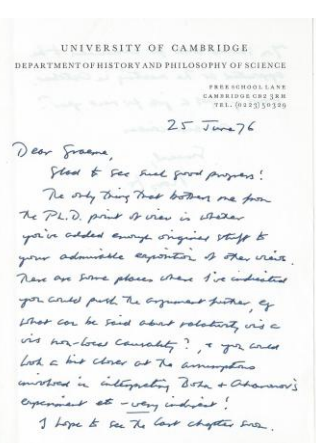 UNIVERSITY OF CAMBRIDGE
DEPARTMENT OF HISTORY AND PHILOSOPHY OF SCIENCE
FREE SCHOOL LANE
CAMBRIDGE CB2 3RH
TEL. (0223) 50329
25 June 76
Dear Graeme,
Glad to see such good progress!
The only thing that bothers me from
the Ph.D. point of view is whether
you've added enough original stuff to
your admirable exposition of other views.
There are some places where I've indicated
you could push the argument further, eg
what can be said about relativity vis a
vis non-local causality?, & you could
look a bit closer at the assumptions
involved in interpreting Bohm & Aharonov's
experiment etc - very indirect!
I hope to see the last chapter soon.